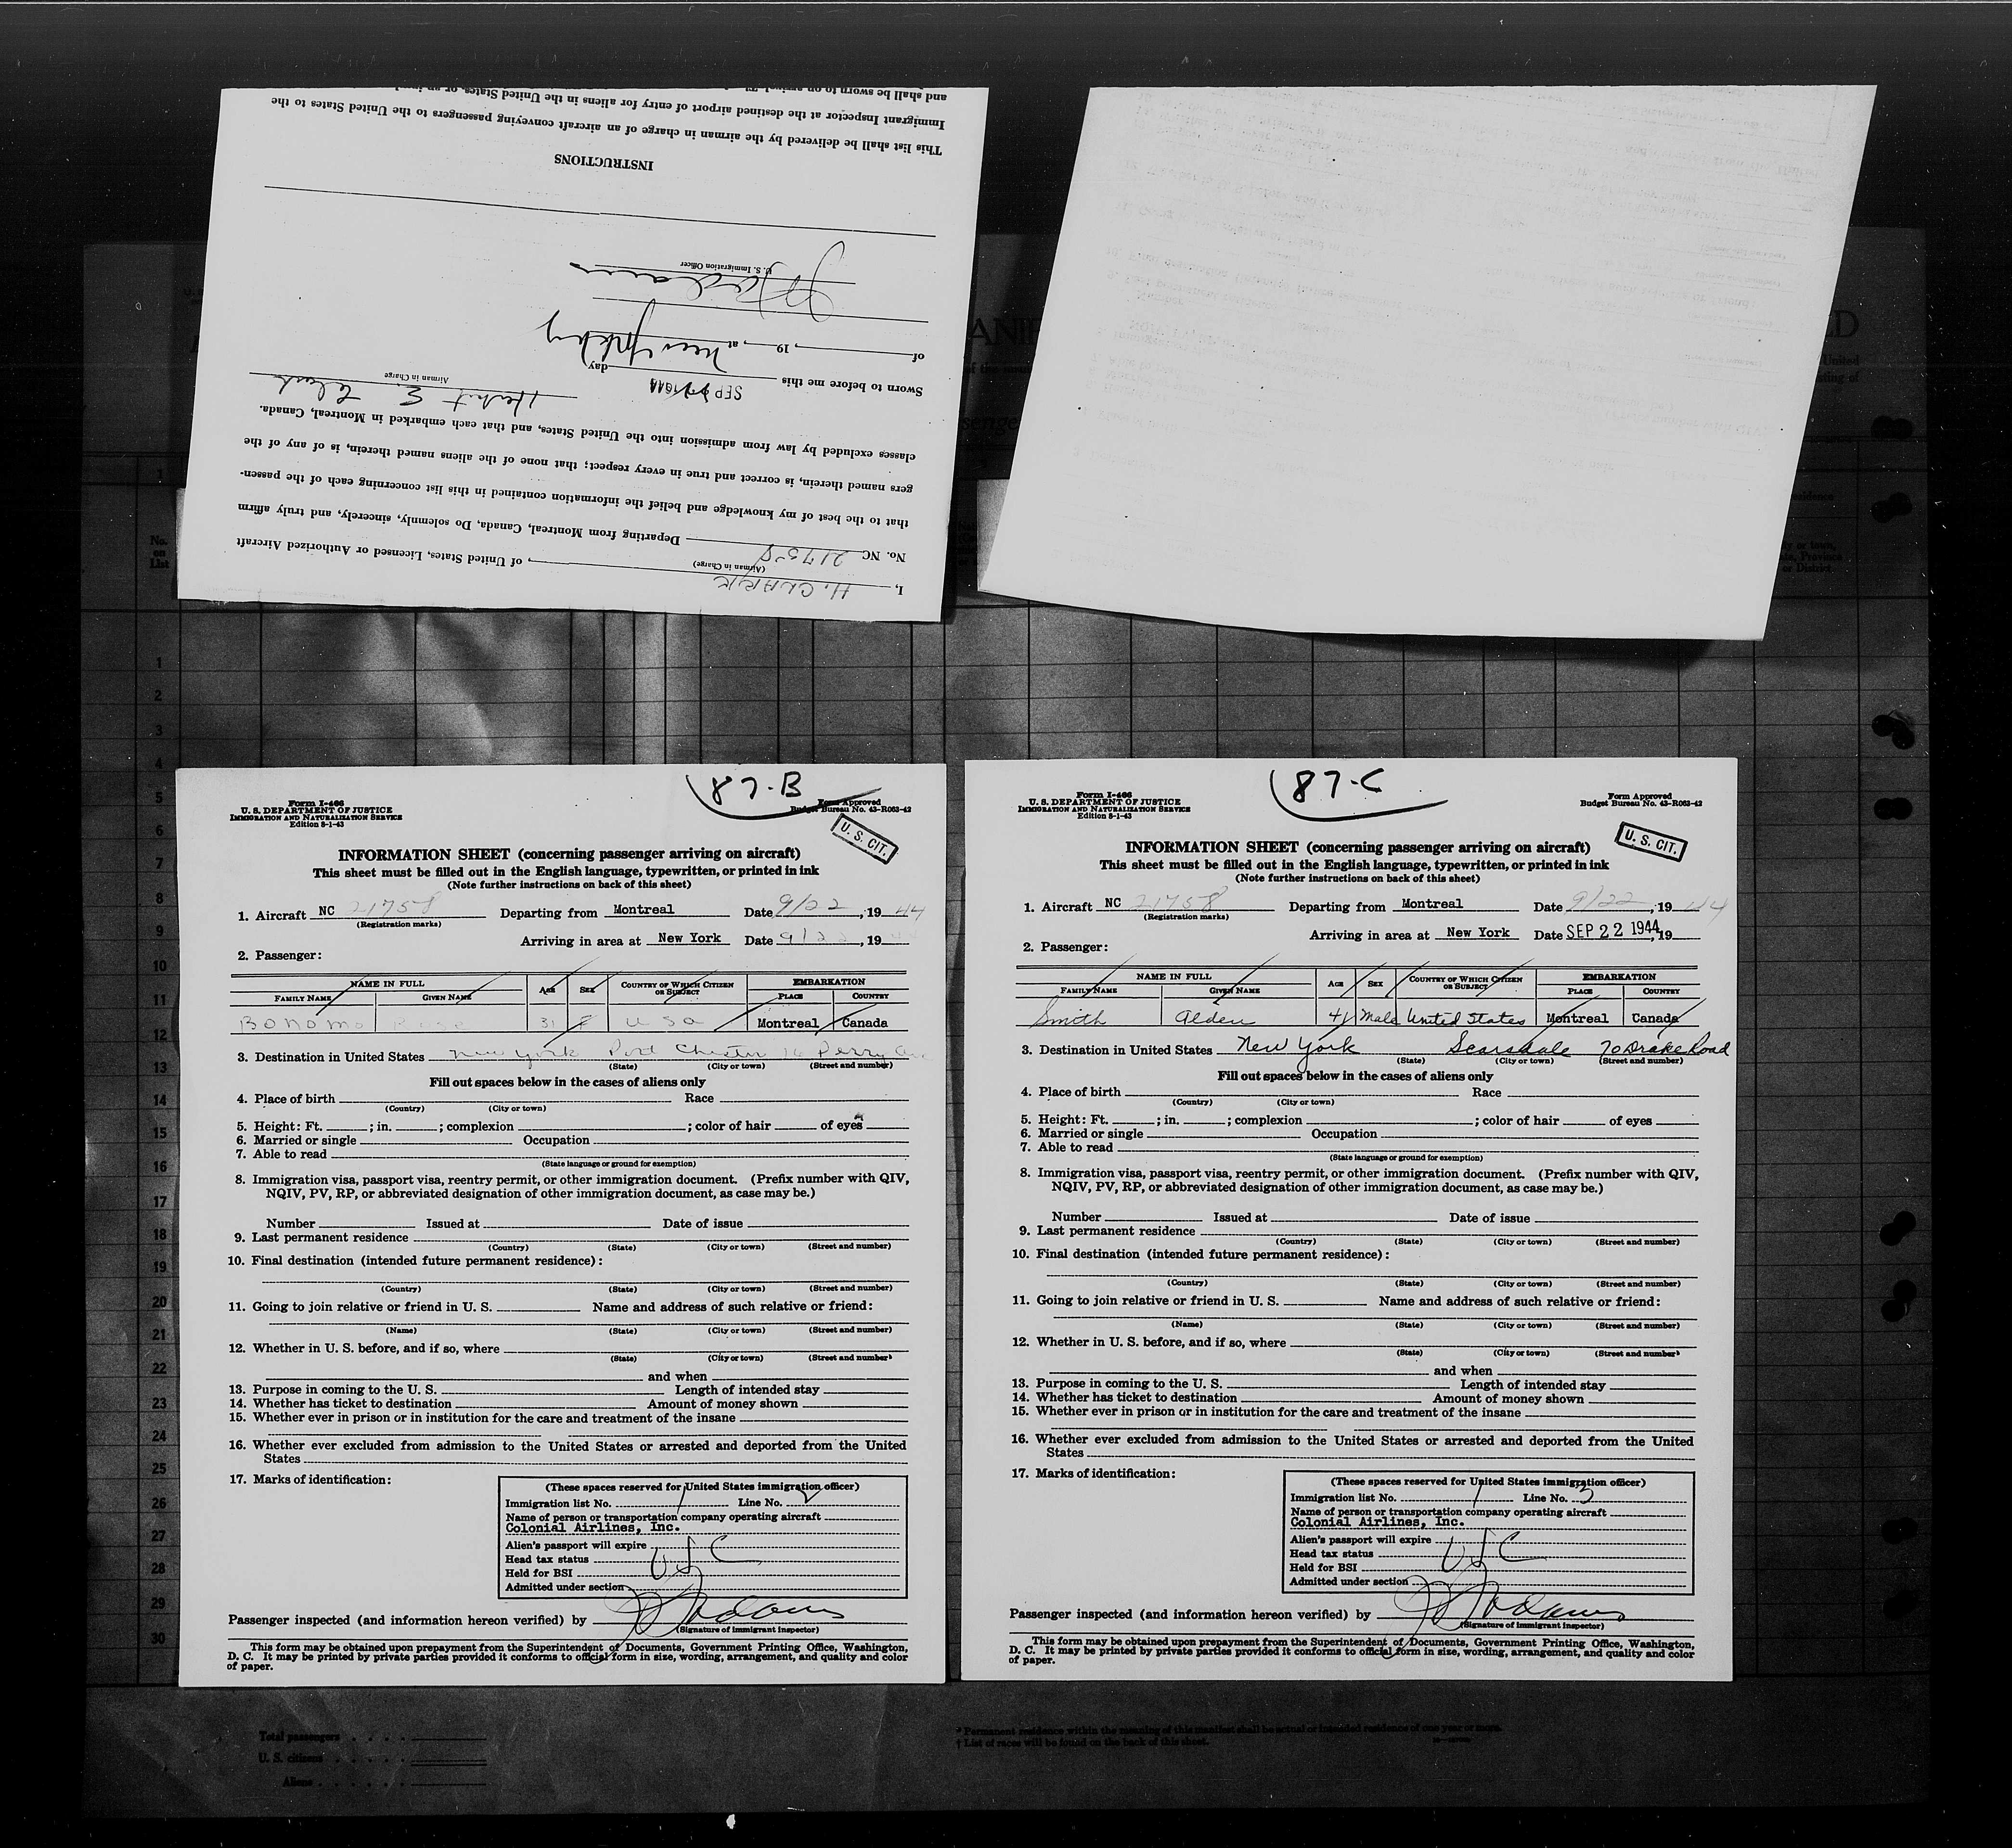 and shall be sworn to on
Immigrant Inspector at the destined airport of entry for aliens in the United States, or
This list shall be delivered by the airman in charge of an aircraft conveying passengers to the United States to the
INSTRUCTIONS
U. S. Immigration Officer
of , 19 , at New York
Sworn to before me this SEP day
Airman in Charge
Herbert E Clark
classes excluded by law from admission into the United States, and that each embarked in Montreal, Canada.
gers named therein, is correct and true in every respect; that none of the aliens named therein, is of any of the
that to the best of my knowledge and belief the information contained in this list concerning each of the passen-
No. NC 21758 Departing from Montreal, Canada, Do solemnly, sincerely, and truly affirm
(Airman in Charge)
I, H. CLARK , of United States, Licensed or Authorized Aircraft
No.
on
List
1
1
2
3
4
5
6
7
8
9
10
11
12
13
14
15
16
17
18
19
20
21
22
23
24
25
26
27
28
29
30
87-B
Form I-466
U. S. DEPARTMENT OF JUSTICE
IMMIGRATION AND NATURALIZATION SERVICE
Edition 8-1-43
Form Approved
Budget Bureau No. 43-R063-42
U. S. CIT.
INFORMATION SHEET (concerning passenger arriving on aircraft)
This sheet must be filled out in the English language, typewritten, or printed in ink
(Note further instructions on back of this sheet)
1. Aircraft NC 21758 Departing from Montreal Date 9/22, 19 44
(Registration marks)
Arriving in area at New York Date 9/22, 19
2. Passenger:
NAME IN FULL AGE SEX COUNTRY OF WHICH CITIZEN OR SUBJECT EMBARKATION
FAMILY NAME GIVEN NAME PLACE COUNTRY
Bonomo Rose 31 F USA Montreal Canada
3. Destination in United States New York Port Chester 16 Perry Ave
(State) (City or town) (Street and number)
Fill out spaces below in the cases of aliens only
4. Place of birth Race
(Country) (City or town)
5. Height: Ft. ; in. ; complexion ; color of hair of eyes
6. Married or single Occupation
7. Able to read
(State language or ground for exemption)
8. Immigration visa, passport visa, reentry permit, or other immigration document. (Prefix number with QIV,
NQIV, PV, RP, or abbreviated designation of other immigration document, as case may be.)
Number Issued at Date of issue
9. Last permanent residence
(Country) (State) (City or town) (Street and number)
10. Final destination (intended future permanent residence):
(Country) (State) (City or town) (Street and number)
11. Going to join relative or friend in U. S. Name and address of such relative or friend:
(Name) (State) (City or town) (Street and number)
12. Whether in U. S. before, and if so, where
(State) (City or town) (Street and number)
and when
13. Purpose in coming to the U. S. Length of intended stay
14. Whether has ticket to destination Amount of money shown
15. Whether ever in prison or in institution for the care and treatment of the insane
16. Whether ever excluded from admission to the United States or arrested and deported from the United
States
17. Marks of identification:
(These spaces reserved for United States immigration officer)
Immigration list No. 1 Line No. 2
Name of person or transportation company operating aircraft
Colonial Airlines, Inc.
Alien's passport will expire
Head tax status USC
Held for BSI
Admitted under section
Passenger inspected (and information hereon verified) by
(Signature of immigrant inspector)
This form may be obtained upon prepayment from the Superintendent of Documents, Government Printing Office, Washington,
D. C. It may be printed by private parties provided it conforms to official form in size, wording, arrangement, and quality and color
of paper.
87-C
Form I-466
U. S. DEPARTMENT OF JUSTICE
IMMIGRATION AND NATURALIZATION SERVICE
Edition 8-1-43
Form Approved
Budget Bureau No. 43-R063-42
U. S. CIT.
INFORMATION SHEET (concerning passenger arriving on aircraft)
This sheet must be filled out in the English language, typewritten, or printed in ink
(Note further instructions on back of this sheet)
1. Aircraft NC 21758 Departing from Montreal Date 9/22, 19 44
(Registration marks)
Arriving in area at New York Date SEP 22 1944, 19
2. Passenger:
NAME IN FULL AGE SEX COUNTRY OF WHICH CITIZEN OR SUBJECT EMBARKATION
FAMILY NAME GIVEN NAME PLACE COUNTRY
Smith Alden 41 Male United States Montreal Canada
3. Destination in United States New York Scarsdale 70 Drake Road
(State) (City or town) (Street and number)
Fill out spaces below in the cases of aliens only
4. Place of birth Race
(Country) (City or town)
5. Height: Ft. ; in. ; complexion ; color of hair of eyes
6. Married or single Occupation
7. Able to read
(State language or ground for exemption)
8. Immigration visa, passport visa, reentry permit, or other immigration document. (Prefix number with QIV,
NQIV, PV, RP, or abbreviated designation of other immigration document, as case may be.)
Number Issued at Date of issue
9. Last permanent residence
(Country) (State) (City or town) (Street and number)
10. Final destination (intended future permanent residence):
(Country) (State) (City or town) (Street and number)
11. Going to join relative or friend in U. S. Name and address of such relative or friend:
(Name) (State) (City or town) (Street and number)
12. Whether in U. S. before, and if so, where
(State) (City or town) (Street and number)
and when
13. Purpose in coming to the U. S. Length of intended stay
14. Whether has ticket to destination Amount of money shown
15. Whether ever in prison or in institution for the care and treatment of the insane
16. Whether ever excluded from admission to the United States or arrested and deported from the United
States
17. Marks of identification:
(These spaces reserved for United States immigration officer)
Immigration list No. 1 Line No. 3
Name of person or transportation company operating aircraft
Colonial Airlines, Inc.
Alien's passport will expire
Head tax status USC
Held for BSI
Admitted under section
Passenger inspected (and information hereon verified) by
(Signature of immigrant inspector)
This form may be obtained upon prepayment from the Superintendent of Documents, Government Printing Office, Washington,
D. C. It may be printed by private parties provided it conforms to official form in size, wording, arrangement, and quality and color
of paper.
Total passengers
U. S. citizens
Aliens
* Permanent residence within the meaning of this manifest shall be actual or intended residence of one year or more.
† List of races will be found on the back of this sheet.